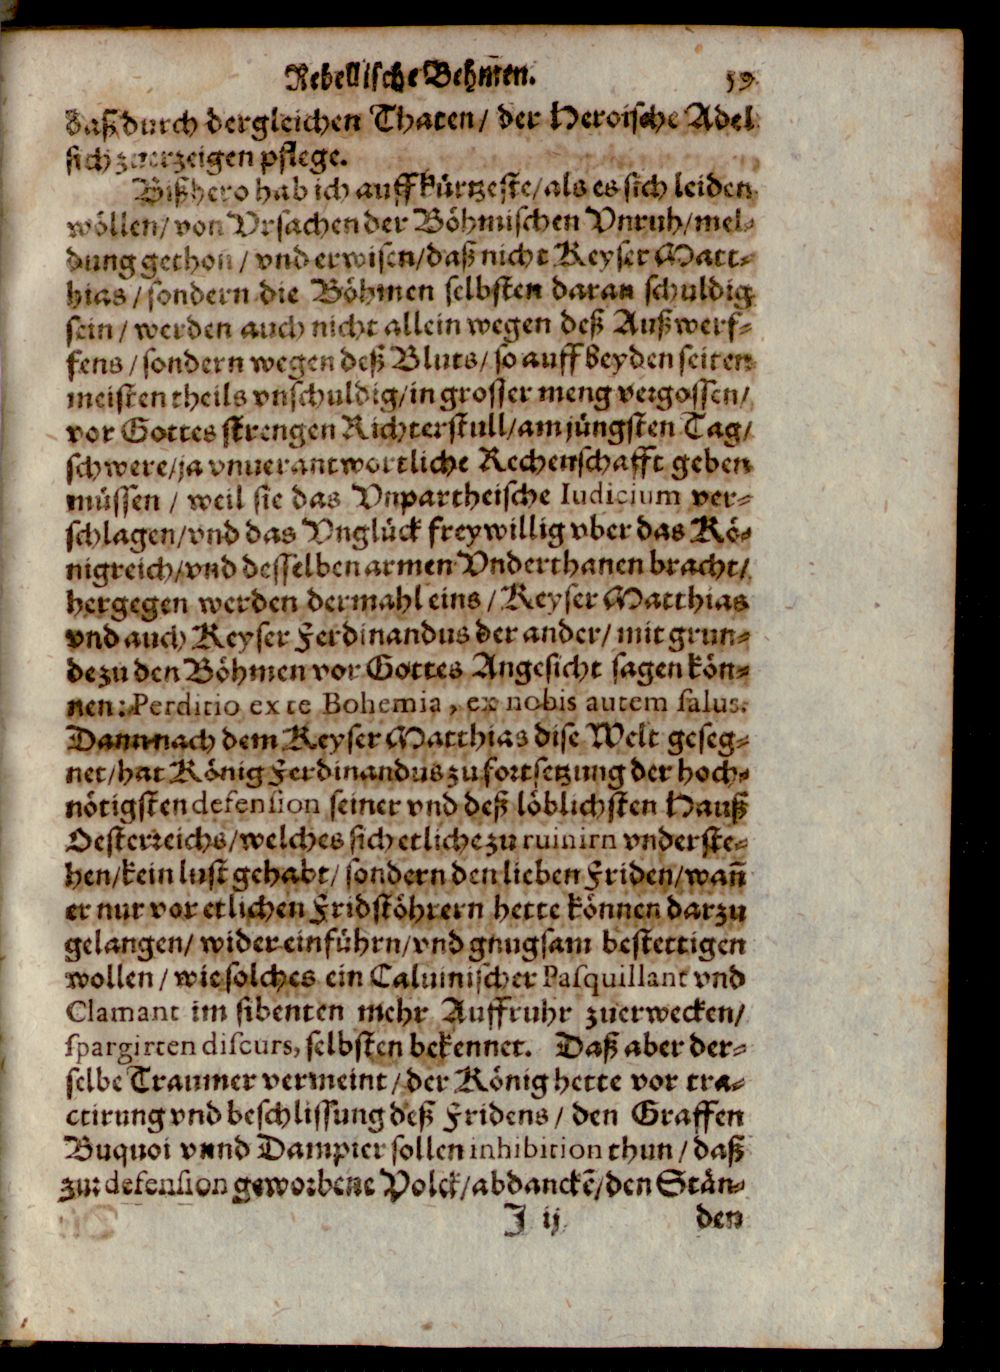 Rebellische Behm̃en. 59
daß durch dergleichen Thaten/ der Heroische Adel
sich zuerzeigen pflege.
Bißhero hab ich auff kürtzeste/ als es sich leiden
wöllen/ von Vrsachen der Böhmischen Vnruh/ mel-
dung gethon/ vnd erwisen/ daß nicht Keyser Matt-
hias/ sondern die Böhmen selbsten daran schuldig
sein/ werden auch nicht allein wegen deß Außwerf-
fens/ sondern wegen deß Bluts/ so auff beyden seiten
meisten theils vnschuldig/ in grosser meng vergossen/
vor Gottes strengen Richterstull/ am jüngsten Tag/
schwere/ ja vnuerantwortliche Rechenschafft geben
müssen/ weil sie das Vnpartheische Iudicium ver-
schlagen/ vnd das Vnglück freywillig vber das Kö-
nigreich/ vnd desselben armen Vnderthanen bracht/
hergegen werden dermahl eins/ Keyser Matthias
vnd auch Keyser Ferdinandus der ander/ mit grun-
de zu den Böhmen vor Gottes Angesicht sagen kön-
nen: Perditio ex te Bohemia, ex nobis autem salus.
Dann nach dem Keyser Matthias dise Welt geseg-
net/ hat König Ferdinandus zu fortsetzung der hoch-
nötigsten defension seiner vnd deß löblichsten Hauß
Oesterreichs/ welches sich etliche zu ruinirn vnderste-
hen/ kein lust gehabt/ sondern den lieben Friden/ wañ
er nur vor etlichen Fridstöhrern hette können darzu
gelangen/ wider einführn/ vnd gnugsam bestettigen
wollen/ wie solches ein Caluinischer Pasquillant vnd
Clamant im sibenten mehr Auffruhr zuerwecken/
spargirten discurs, selbsten bekennet. Daß aber der-
selbe Traumer vermeint/ der König hette vor tra-
ctirung vnd beschlissung deß Fridens/ den Graffen
Buquoi vnnd Dampier sollen inhibition thun/ daß
zur defension geworbene Volck/ abdanckē/ den Stän-
J ij den